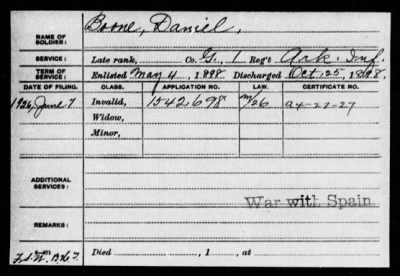 Boone, Daniel,
NAME OF SOLDIER:
SERVICE: Late rank, Co. G, 1 Reg't Ark. Inf.
TERM OF SERVICE: Enlisted May 4, 1898 Discharged Oct. 25, 1898.
DATE OF FILING. CLASS. APPLICATION NO. LAW. CERTIFICATE NO.
1926, June 7 Invalid, 1542698 a4-27-27
Widow,
Minor,
ADDITIONAL SERVICES:
War with Spain
REMARKS:
Died , 1 , at